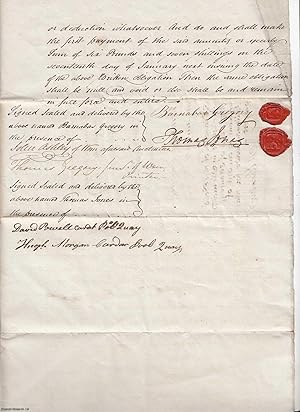 or deduction whatsoever And do and shall make
the first payment of the said annuity or yearly
Sum of Six Pounds and seven shillings on the
seventeenth day of January next ensuing the date
of the above written obligation Then the above obligation
shall be null and void or else shall be and remain
in full force and virtue
Signed Sealed and delivered by the
above named Barnabas Gregory in
the presence of
Barnabas Gregory
Thomas Jones
John Ashley of
Thomas Gregory
Signed Sealed and delivered by the
above named Thomas Jones in
the presence of
David Powell Pool Quay
Hugh Morgan Pool Quay